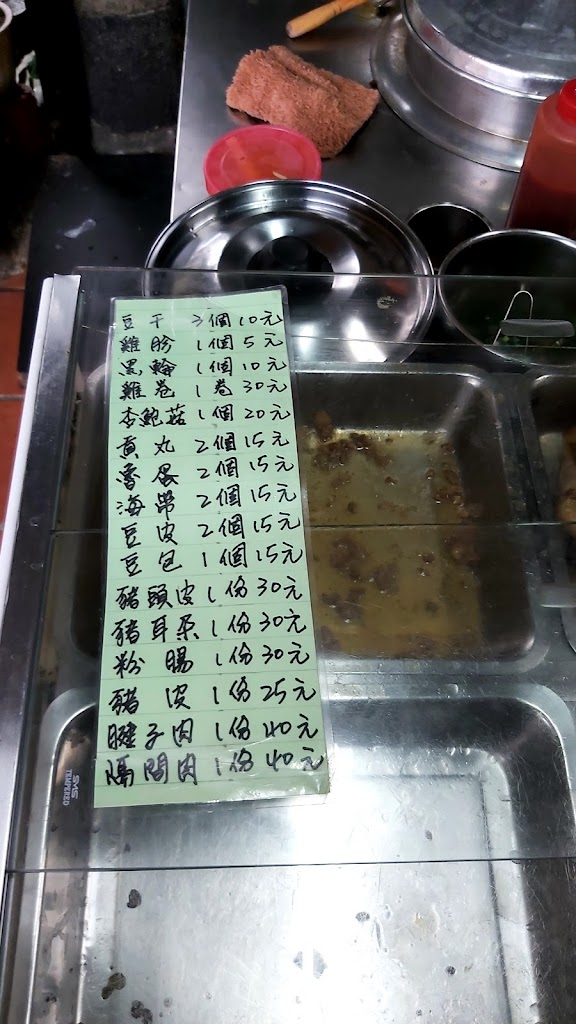 豆干 3個10元
雞胗 1個5元
黑輪 1個10元
雞卷 1卷30元
杏鮑菇 1個20元
貢丸 2個15元
魯蛋 2個15元
海帶 2個15元
豆皮 2個15元
豆包 1個15元
豬頭皮 1份30元
豬耳朵 1份30元
粉腸 1份30元
豬皮 1份25元
腱子肉 1份40元
隔間肉 1份40元
SMS
TEMPERED